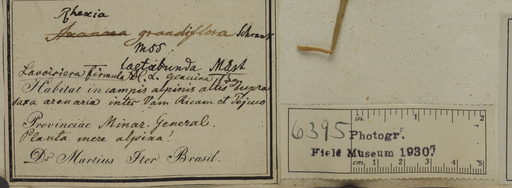 Rhexia
grandiflora Schrank
mss.
laetabunda Mart
Lavoisiera firmula α. genuina
Habitat in campis alpinis altis supra
saxa arenaria inter Vam Ricam et Tejuco
Provinciae Minar. General.
Planta mere alpina!
Dr Martius Iter Brasil.
6395
Photogr.
Field Museum 19307
in. 1 2
cm. 1 2 3 4 5